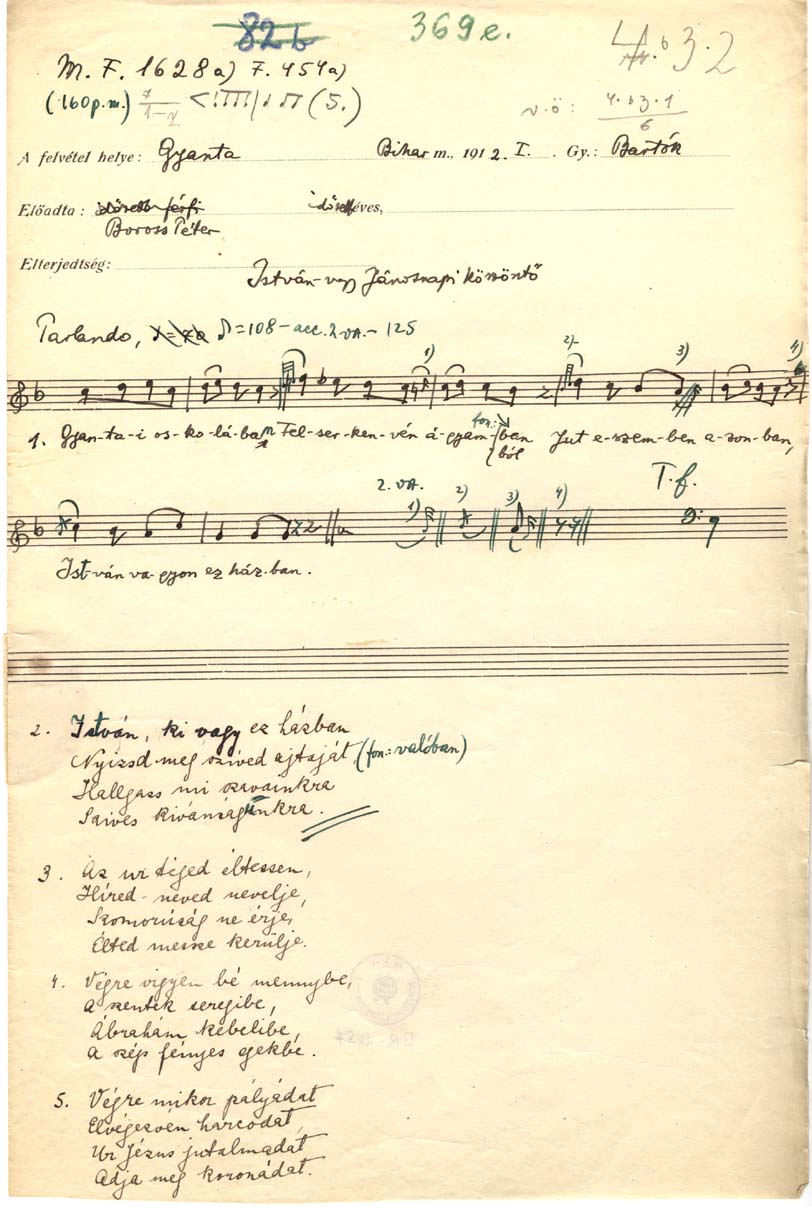 82b 369e. 4.b3.2
M. F. 1628a) F. 454a)
(160 p.m.) 7/1-7 (5.) v.ö: 4.b3.1/6
A felvétel helye: Gyanta Bihar m., 1912. I. Gy.: Bartók
Előadta: idősebb férfi idősebb éves,
Boross Péter
Elterjedtség:
István- vagy Jánosnapi köszöntő
Parlando, ♪=108 - acc. 2. va. - 125
1) 2) 3) 4)
fon:
1. Gyan-ta-i os-ko-lá-ban Fel-ser-ken-vén á-gyam-ban Jut e-szem-ben a-zon-ban,
ból
2. va. 1) 2) 3) 4) T. f.
Ist-ván va-gyon ez ház-ban.
2. István, ki vagy ez házban
Nyizsd-meg szíved ajtaját (fon.: valóban)
Hallgass mi szavainkra
Szíves kívánságunkra.
3. Az úr téged éltessen,
Híred-neved nevelje,
Szomorúság ne érje,
Élted messze kerülje.
4. Végre vigyen bé mennybe,
A szentek seregibe,
Ábrahám kebelibe,
A szép fényes egekbe.
5. Végre mikor pályádat
Elvégezvén harcodat,
Ur Jézus jutalmadat
Adja meg koronádat.